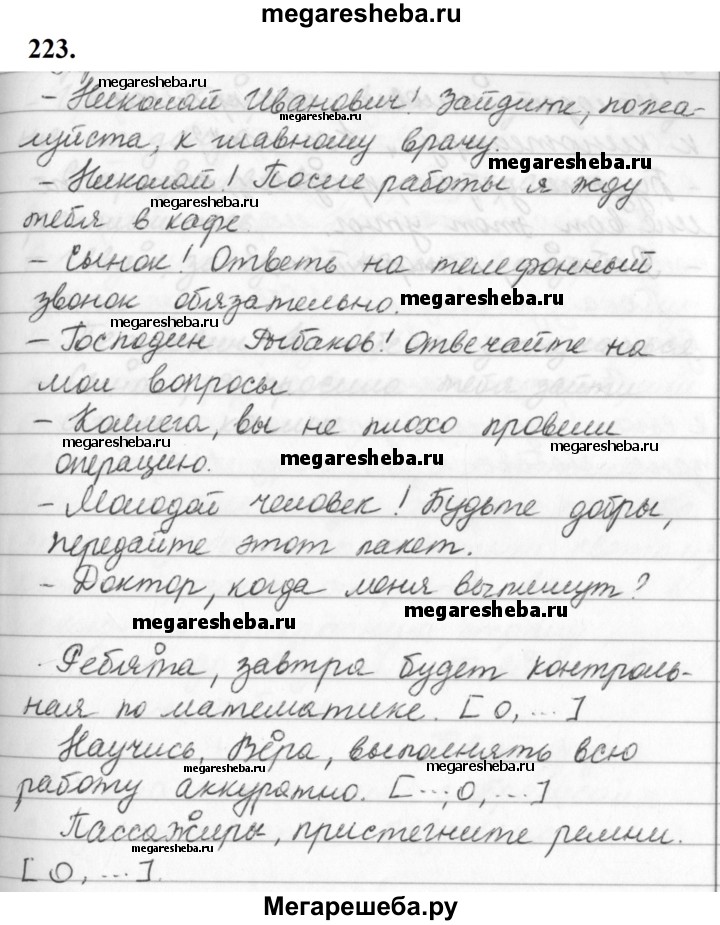 megaresheba.ru
223.
megaresheba.ru
- Николай Иванович! Зайдите, пожа-
megaresheba.ru
луйста, к главному врачу.
megaresheba.ru
- Николай! После работы я жду
megaresheba.ru
тебя в кафе.
- Сынок! Ответь на телефонный
звонок обязательно.
megaresheba.ru
megaresheba.ru
- Господин Рыбаков! Отвечайте на
мои вопросы
- Коллега, вы не плохо провели
megaresheba.ru
операцию.
megaresheba.ru
- Молодой человек! Будьте добры,
передайте этот пакет.
- Доктор, когда меня выпишут?
megaresheba.ru
megaresheba.ru
Ребята, завтра будет контроль-
ная по математике. [О, ...]
Научись, Вера, выполнять всю
megaresheba.ru
megaresheba.ru
работу аккуратно. [...,О,...]
Пассажиры, пристегните ремни.
megaresheba.ru
[О, ...].
megaresheba.ru
Мегарешеба.ру